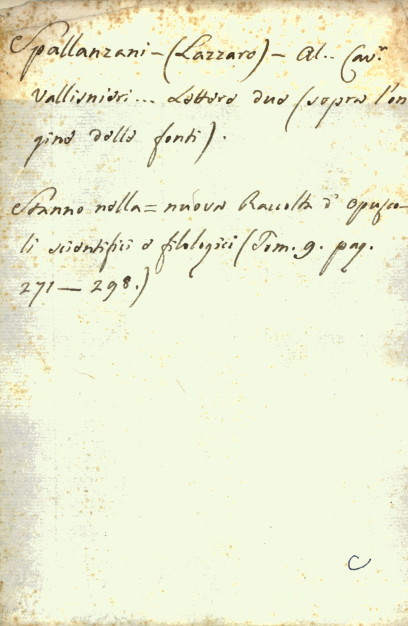 Spallanzani - (Lazzaro) - Al.. Cav.r
Vallisnieri... Lettere due (sopra l'ori
gine delle fonti).
Stanno nella = nuova Raccolta d' opusco-
li scientifici e filologici (Tom. 9. pag.
271 — 298.)
C